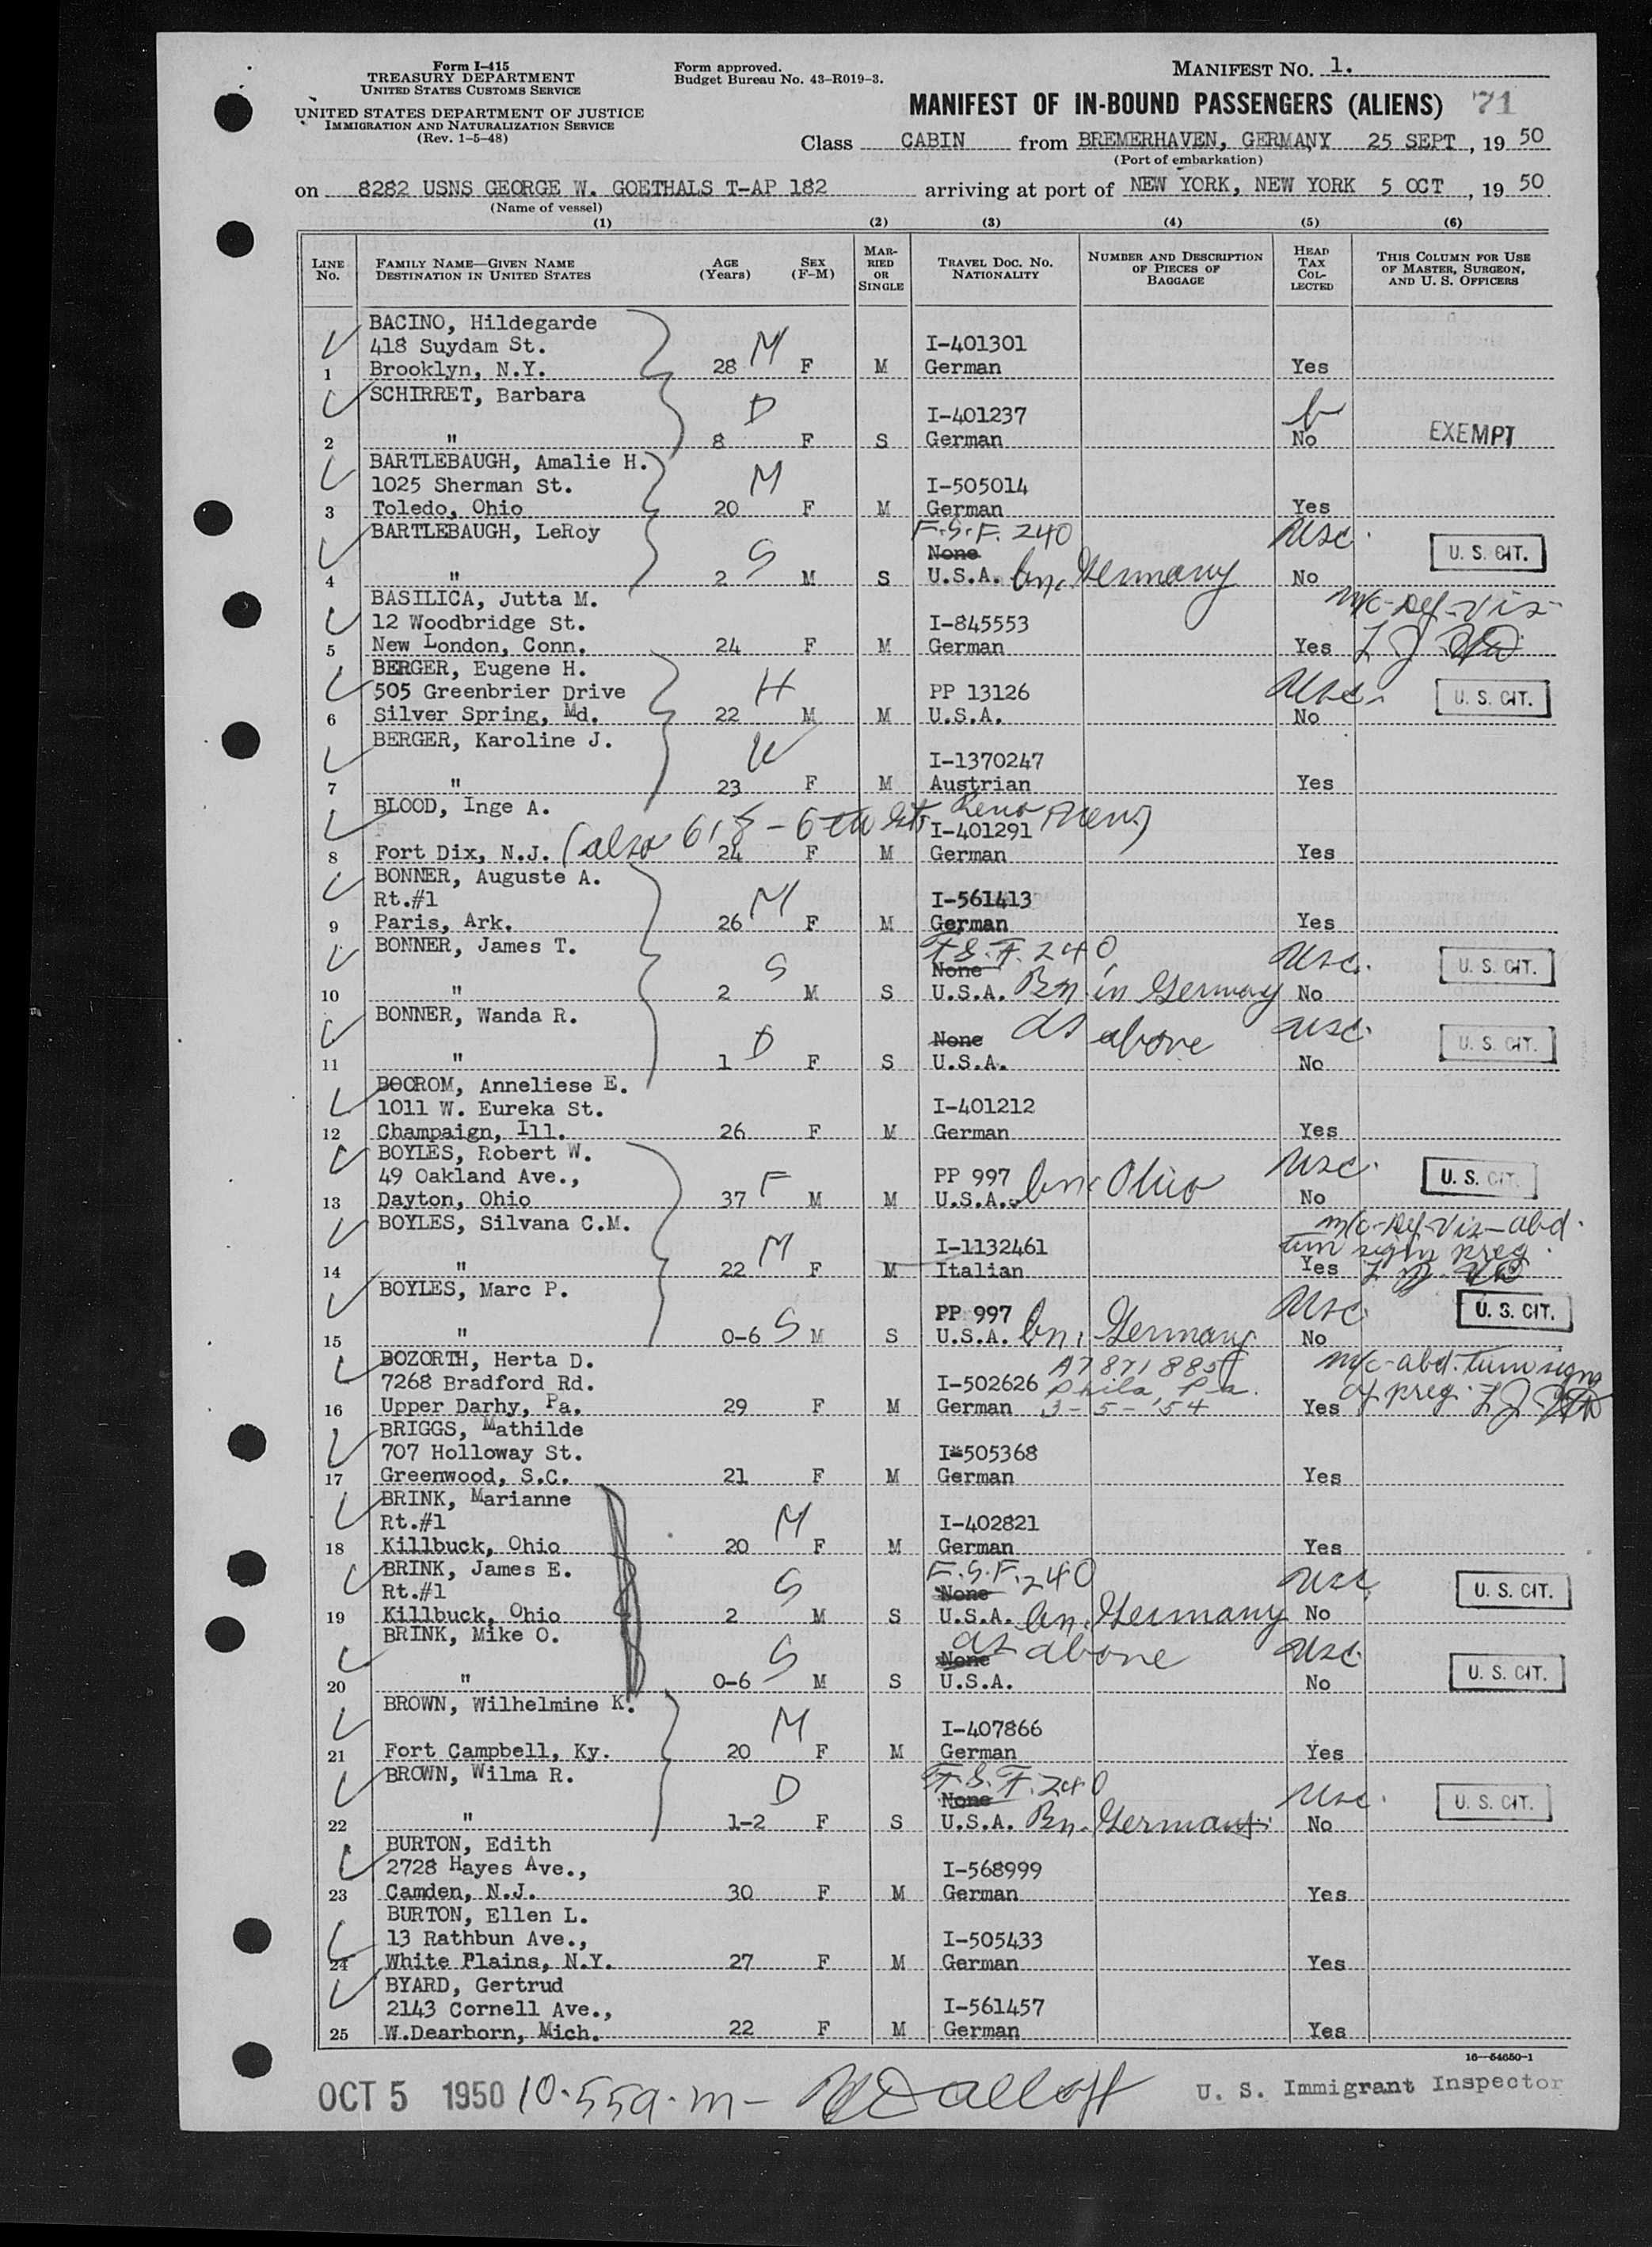 Form I-415
TREASURY DEPARTMENT
UNITED STATES CUSTOMS SERVICE
UNITED STATES DEPARTMENT OF JUSTICE
IMMIGRATION AND NATURALIZATION SERVICE
(Rev. 1-5-48)
Form approved.
Budget Bureau No. 43-R019-3.
MANIFEST NO. 1.
MANIFEST OF IN-BOUND PASSENGERS (ALIENS) 71
Class CABIN from BREMERHAVEN, GERMANY 25 SEPT, 19 50
(Port of embarkation)
on 8282 USNS GEORGE W. GOETHALS T-AP 182 arriving at port of NEW YORK, NEW YORK 5 OCT, 19 50
(Name of vessel)
(1) (2) (3) (4) (5) (6)
LINE No. FAMILY NAME—GIVEN NAME DESTINATION IN UNITED STATES AGE (Years) SEX (F-M) MARRIED OR SINGLE TRAVEL DOC. NO. NATIONALITY NUMBER AND DESCRIPTION OF PIECES OF BAGGAGE HEAD TAX COLLECTED THIS COLUMN FOR USE OF MASTER, SURGEON, AND U. S. OFFICERS
BACINO, Hildegarde
418 Suydam St. M I-401301
1 Brooklyn, N.Y. 28 F M German Yes
SCHIRRET, Barbara
D I-401237
2 " 8 F S German No EXEMPT
BARTLEBAUGH, Amalie H.
1025 Sherman St. M I-505014
3 Toledo, Ohio 20 F M German Yes
BARTLEBAUGH, LeRoy F.S.F. 240 USC.
S None U. S. CIT.
4 " 2 M S U.S.A. bn. Germany No
BASILICA, Jutta M. m/c-Def-Vis-
12 Woodbridge St. I-845553
5 New London, Conn. 24 F M German Yes
BERGER, Eugene H.
505 Greenbrier Drive H PP 13126 USC. U. S. CIT.
6 Silver Spring, Md. 22 M M U.S.A. No
BERGER, Karoline J.
W I-1370247
7 " 23 F M Austrian Yes
BLOOD, Inge A.
(also 618 - 6th St Reno Nev) I-401291
8 Fort Dix, N.J. 24 F M German Yes
BONNER, Auguste A.
Rt.#1 M I-561413
9 Paris, Ark. 26 F M German Yes
BONNER, James T. F.S.F. 240 USC.
S None U. S. CIT.
10 " 2 M S U.S.A. Bn. in Germany No
BONNER, Wanda R. as above USC.
D None U. S. CIT.
11 " 1 F S U.S.A. No
BOCROM, Anneliese E.
1011 W. Eureka St. I-401212
12 Champaign, Ill. 26 F M German Yes
BOYLES, Robert W. USC.
49 Oakland Ave., F PP 997 U. S. CIT.
13 Dayton, Ohio 37 M M U.S.A. bn. Ohio No
BOYLES, Silvana C.M. m/c-Def-Vis-abd.
M I-1132461 tum sign preg.
14 " 22 F M Italian Yes
BOYLES, Marc P. USC
S PP 997 U. S. CIT.
15 " 0-6 M S U.S.A. bn. Germany No
BOZORTH, Herta D. m/c-abd. tum sign
7268 Bradford Rd. I-502626 Phila, Pa. of preg.
16 Upper Darhy, Pa. 29 F M German 3-5-'54 Yes
BRIGGS, Mathilde
707 Holloway St. I-505368
17 Greenwood, S.C. 21 F M German Yes
BRINK, Marianne
Rt.#1 M I-402821
18 Killbuck, Ohio 20 F M German Yes
BRINK, James E. F.S.F. 240 USC
Rt.#1 S None U. S. CIT.
19 Killbuck, Ohio 2 M S U.S.A. bn. Germany No
BRINK, Mike O. as above USC.
S None U. S. CIT.
20 " 0-6 M S U.S.A. No
BROWN, Wilhelmine K.
M I-407866
21 Fort Campbell, Ky. 20 F M German Yes
BROWN, Wilma R. F.S.F. 240 USC.
D None U. S. CIT.
22 " 1-2 F S U.S.A. Bn. Germany No
BURTON, Edith
2728 Hayes Ave., I-568999
23 Camden, N.J. 30 F M German Yes
BURTON, Ellen L.
13 Rathbun Ave., I-505433
24 White Plains, N.Y. 27 F M German Yes
BYARD, Gertrud
2143 Cornell Ave., I-561457
25 W.Dearborn, Mich. 22 F M German Yes
16—54650-1
OCT 5 1950 10.55a.m- U. S. Immigrant Inspector